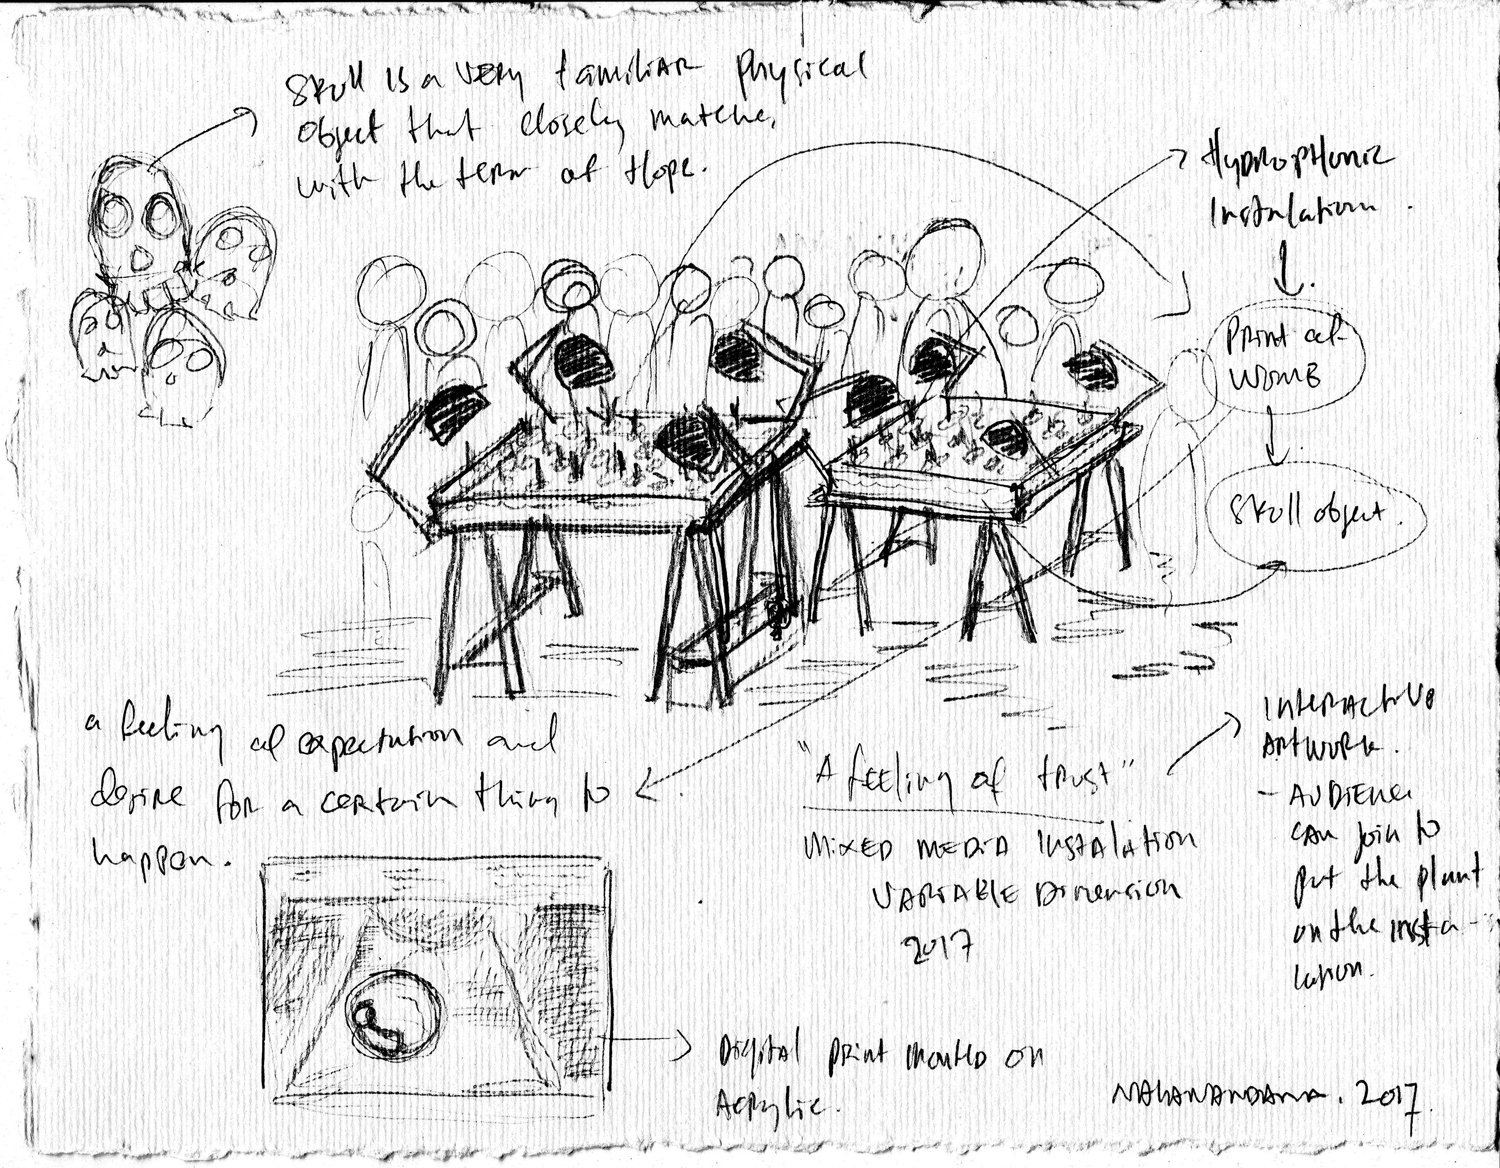 Skull is a very familiar physical
object that closely matches
with the term of Hope.
Hydrophonic
Instalation.
Print of
womb
Skull object.
a feeling of expectation and
desire for a certain thing to
happen.
"A feeling of trust"
Mixed media instalation
variable dimension
2017
Interactive
artwork.
- Audience
can join to
put the plant
on the insta-
lation.
Digital print mounted on
Acrylic.
2017.